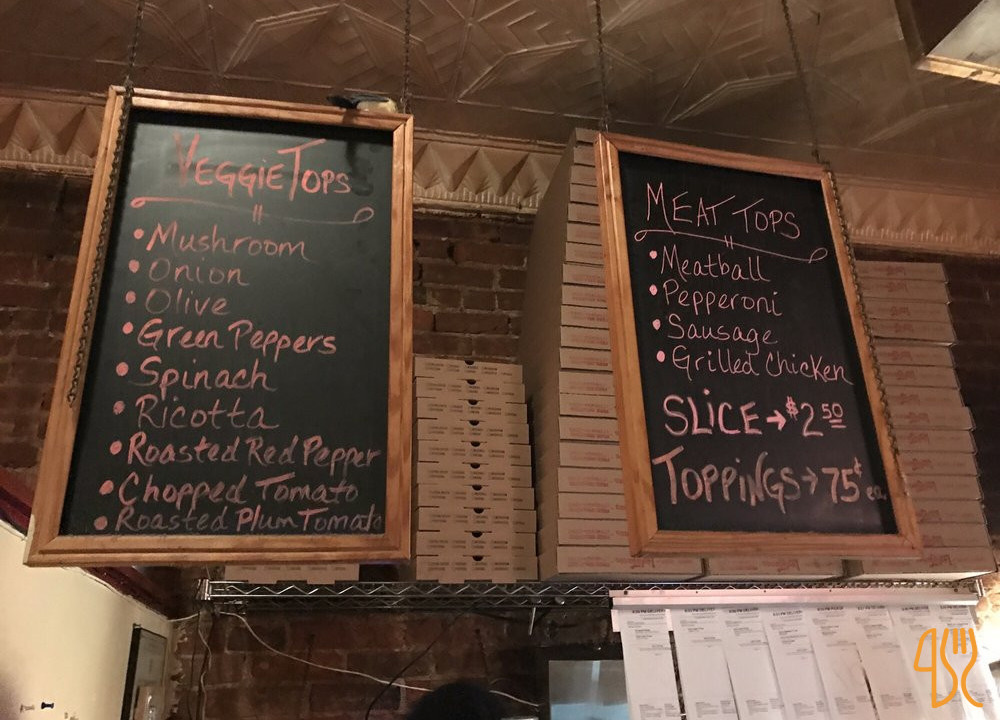 VEGGIE TOPS
• Mushroom
• Onion
• Olive
• Green Peppers
• Spinach
• Ricotta
• Roasted Red Pepper
• Chopped Tomato
• Roasted Plum Tomato
MEAT TOPS
• Meatball
• Pepperoni
• Sausage
• Grilled Chicken
SLICE → $2.50
TOPPINGS → 75¢ ea